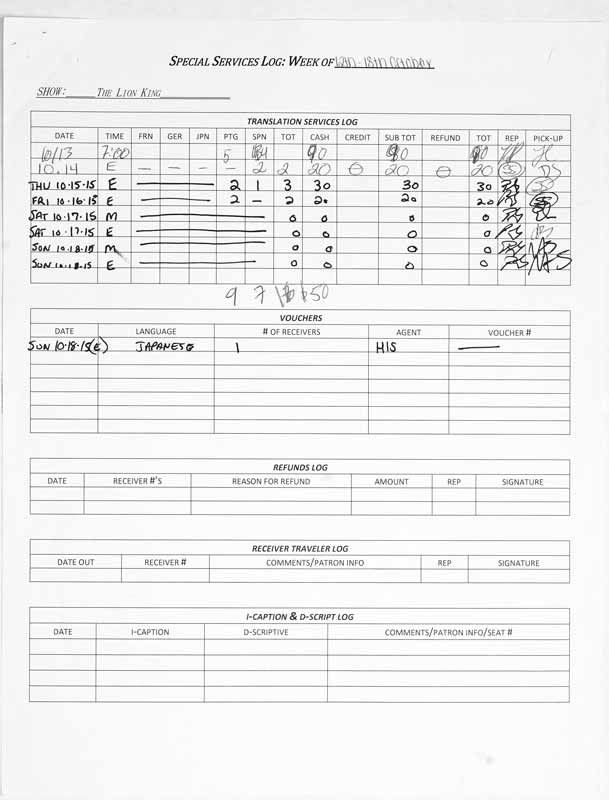 SPECIAL SERVICES LOG: WEEK OF 12th - 18th October
SHOW: THE LION KING
TRANSLATION SERVICES LOG
DATE TIME FRN GER JPN PTG SPN TOT CASH CREDIT SUB TOT REFUND TOT REP PICK-UP
10/13 7:00 5 90 90 90
10.14 E — — — — 2 2 20 θ 20 θ 20 SS DS
THU 10.15.15 E 2 1 3 30 30 30
FRI 10.16.15 E 2 - 2 20 20 20
SAT 10.17.15 M 0 0 0 0
SAT 10.17.15 E 0 0 0 0
SUN 10.18.15 M 0 0 0 0
SUN 10.18.15 E 0 0 0 0
9 7 16 150
VOUCHERS
DATE LANGUAGE # OF RECEIVERS AGENT VOUCHER #
SUN 10.18.15(E) JAPANESE 1 HIS —
REFUNDS LOG
DATE RECEIVER #'S REASON FOR REFUND AMOUNT REP SIGNATURE
RECEIVER TRAVELER LOG
DATE OUT RECEIVER # COMMENTS/PATRON INFO REP SIGNATURE
I-CAPTION & D-SCRIPT LOG
DATE I-CAPTION D-SCRIPTIVE COMMENTS/PATRON INFO/SEAT #